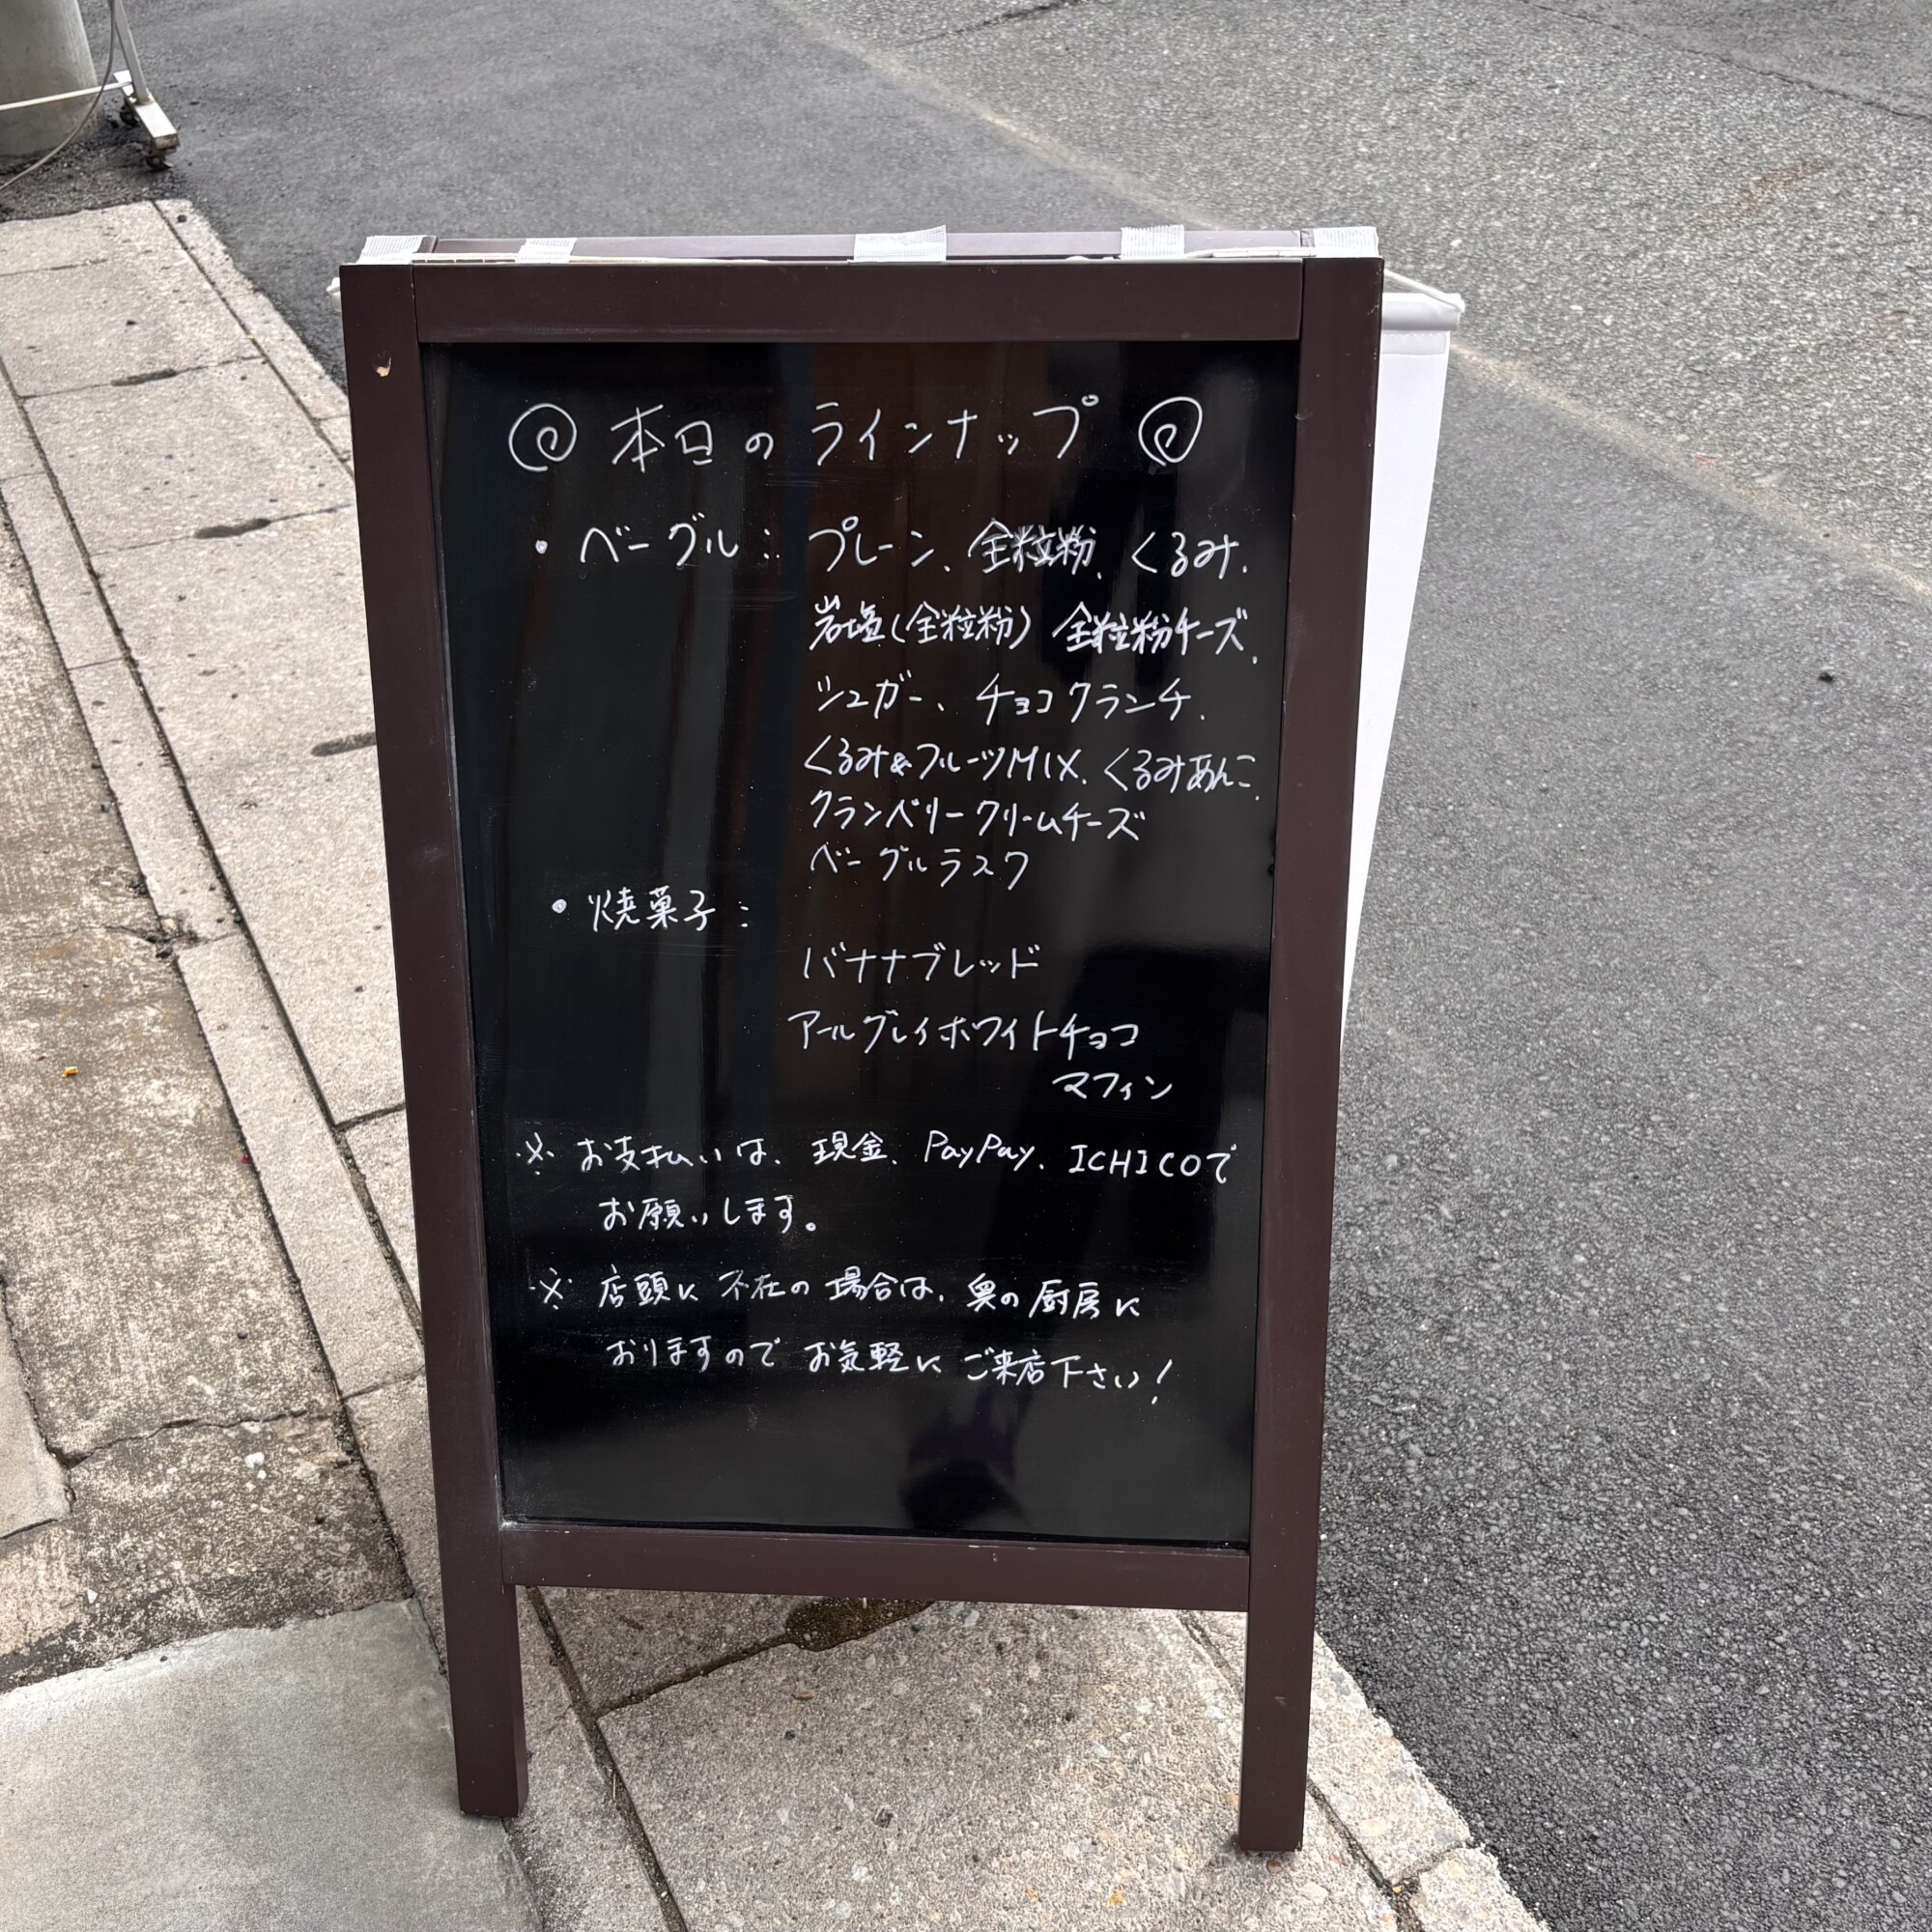 本日のラインナップ
・ベーグル：プレーン、全粒粉、くるみ、
岩塩(全粒粉) 全粒粉チーズ、
シュガー、チョコクランチ、
くるみ&フルーツMIX、くるみあんこ、
クランベリークリームチーズ
ベーグルラスク
・焼菓子：
バナナブレッド
アールグレイホワイトチョコ
マフィン
※お支払いは、現金、PayPay、ICHICOで
お願いします。
※店頭に不在の場合は、奥の厨房に
おりますのでお気軽にご来店下さい!